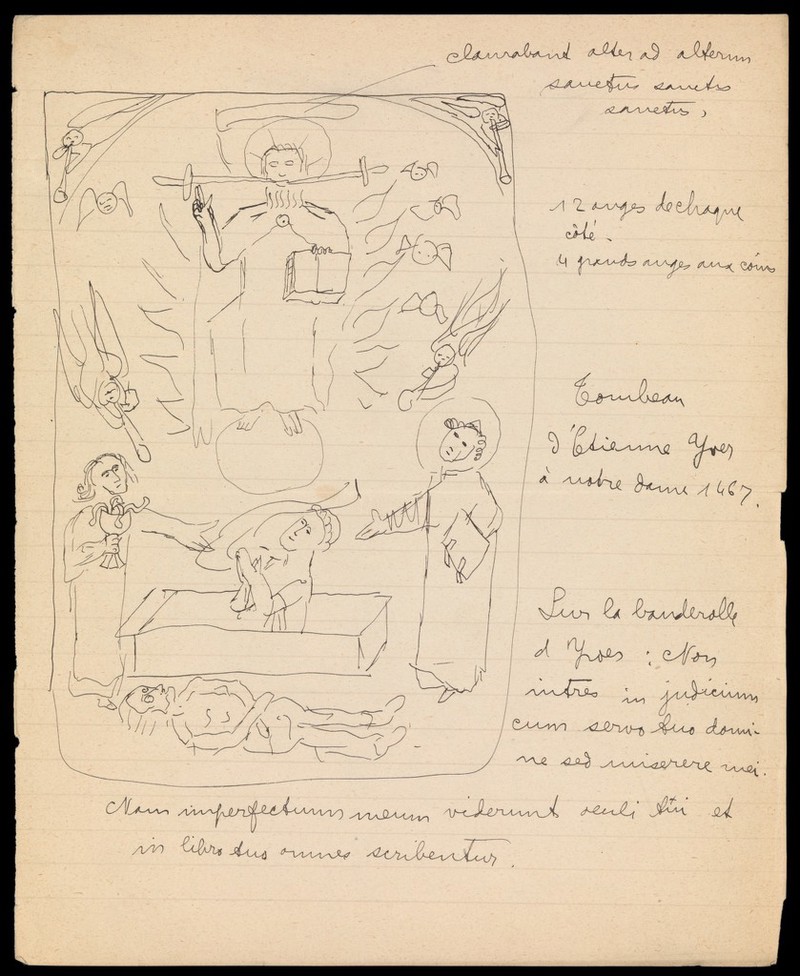 clamabant alter ad alterum
sanctus sanctus
sanctus,
12 anges de chaque
côté.
4 grands anges aux coins
Tombeau
d'Etienne Yver
à notre dame 1467.
Sur la banderolle
d Yves : Non
intres in judicium
cum servo tuo domi-
ne sed miserere mei.
Nam imperfectum meum viderunt oculi tui et
in libro tuo omnes scribentur.